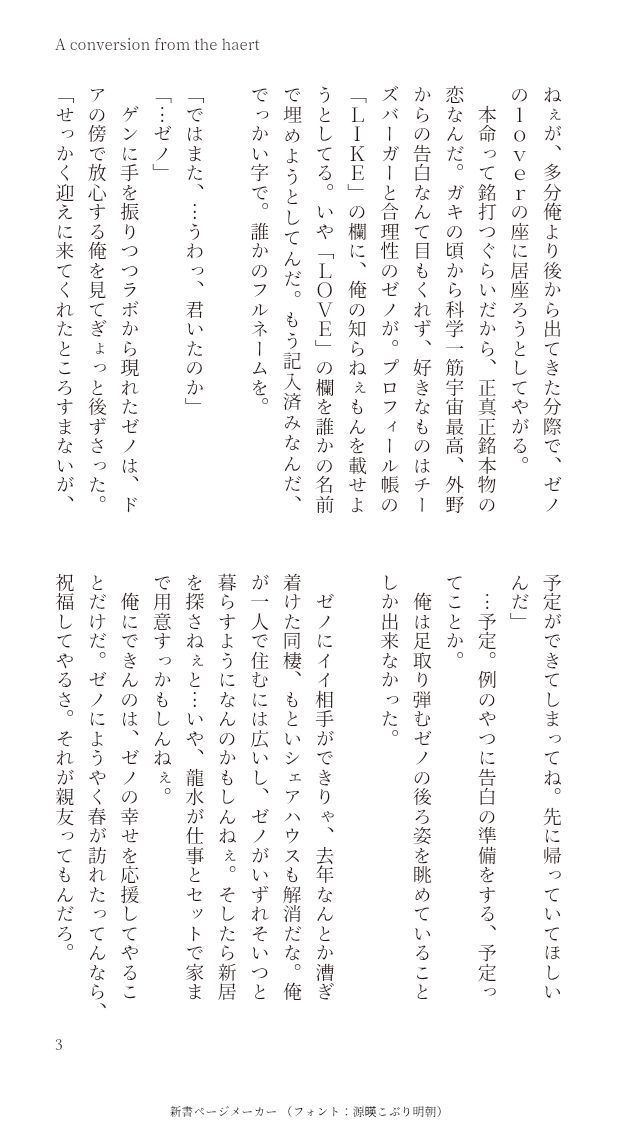 A conversion from the haert
ねぇが、多分俺より後から出てきた分際で、ゼノ
のｌｏｖｅｒの座に居座ろうとしてやがる。
　本命って銘打つぐらいだから、正真正銘本物の
恋なんだ。ガキの頃から科学一筋宇宙最高、外野
からの告白なんて目もくれず、好きなものはチー
ズバーガーと合理性のゼノが。プロフィール帳の
「ＬＩＫＥ」の欄に、俺の知らねぇもんを載せよ
うとしてる。いや「ＬＯＶＥ」の欄を誰かの名前
で埋めようとしてんだ。もう記入済みなんだ、
でっかい字で。誰かのフルネームを。
「ではまた、…うわっ、君いたのか」
「…ゼノ」
　ゲンに手を振りつつラボから現れたゼノは、ド
アの傍で放心する俺を見てぎょっと後ずさった。
「せっかく迎えに来てくれたところすまないが、
予定ができてしまってね。先に帰っていてほしい
んだ」
　…予定。例のやつに告白の準備をする、予定っ
てことか。
　俺は足取り弾むゼノの後ろ姿を眺めていること
しか出来なかった。
　ゼノにイイ相手ができりゃ、去年なんとか漕ぎ
着けた同棲、もといシェアハウスも解消だな。俺
が一人で住むには広いし、ゼノがいずれそいつと
暮らすようになんのかもしんねぇ。そしたら新居
を探さねぇと…いや、龍水が仕事とセットで家ま
で用意すっかもしんねぇ。
　俺にできんのは、ゼノの幸せを応援してやるこ
とだけだ。ゼノにようやく春が訪れたってんなら、
祝福してやるさ。それが親友ってもんだろ。
3
新書ページメーカー（フォント：源暎こぶり明朝）